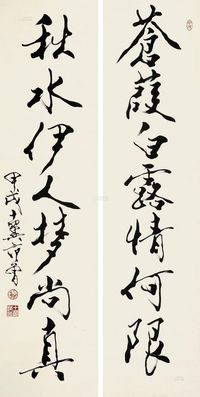 蒼葭白露情何限
秋水伊人夢尚真
甲戌十翼范曾